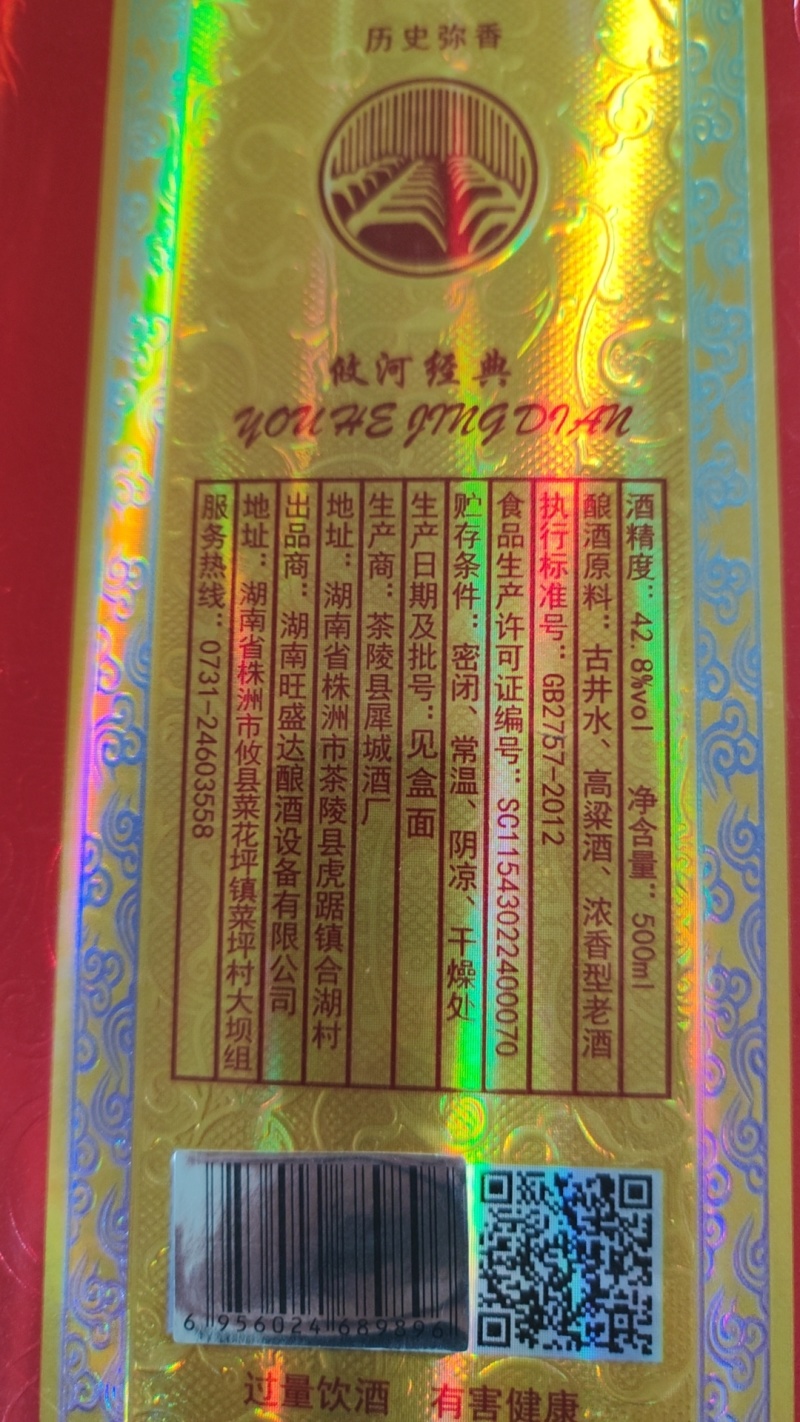 历史弥香
攸河经典
YOU HE JING DIAN
酒精度：42.8%vol 净含量：500ml
酿酒原料：古井水、高粱酒、浓香型老酒
执行标准号：GB2757-2012
食品生产许可证编号：SC11543022400070
贮存条件：密闭、常温、阴凉、干燥处
生产日期及批号：见盒面
生产商：茶陵县犀城酒厂
地址：湖南省株洲市茶陵县虎踞镇合湖村
出品商：湖南旺盛达酿酒设备有限公司
地址：湖南省株洲市攸县菜花坪镇菜坪村大坝组
服务热线：0731-24603558
6 956024 689896
过量饮酒 有害健康